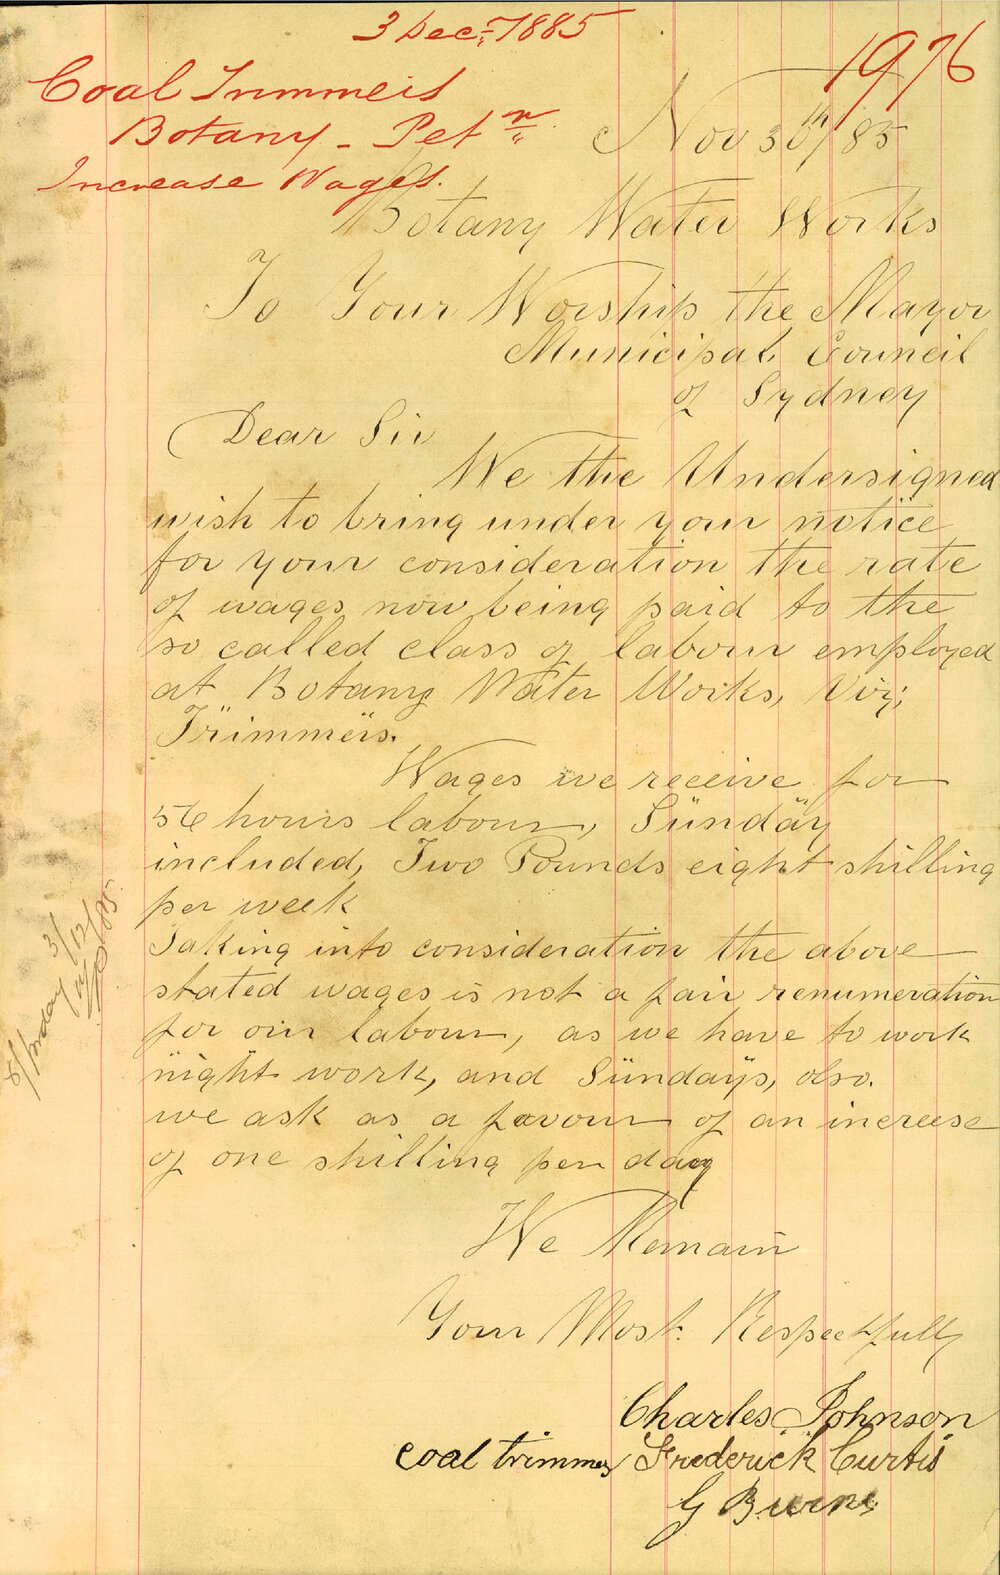 3 Dec. 1885
1976
Coal Trimmers
Botany - Petn
Increase Wages.
Nov 30th/85
Botany Water Works
To Your Worship the Mayor
Municipal Council
of Sydney
Dear Sir
We the Undersigned
wish to bring under your notice
for your consideration the rate
of wages now being paid to the
so called class of labour employed
at Botany Water Works, Viz;
Trimmers.
Wages we receive for
56 hours labour, Sunday
included, Two Pounds eight shilling
per week
Taking into consideration the above
stated wages is not a fair renumeration
for our labour, as we have to work
night work, and Sundays, also.
we ask as a favour of an increese
of one shilling per day
We Remain
Your Most Respectfully
Charles Johnson
coal trimmers Frederick Curtis
G Burns
3/12/85